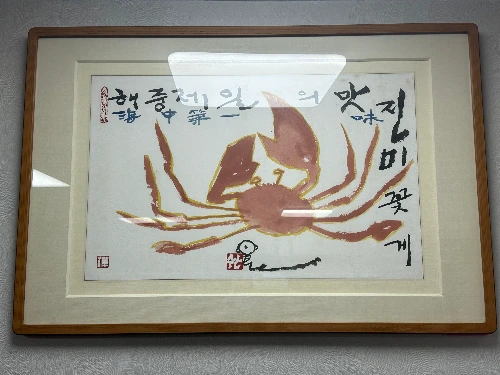 해중제일의 맛
海中第一 味
진미꽃게